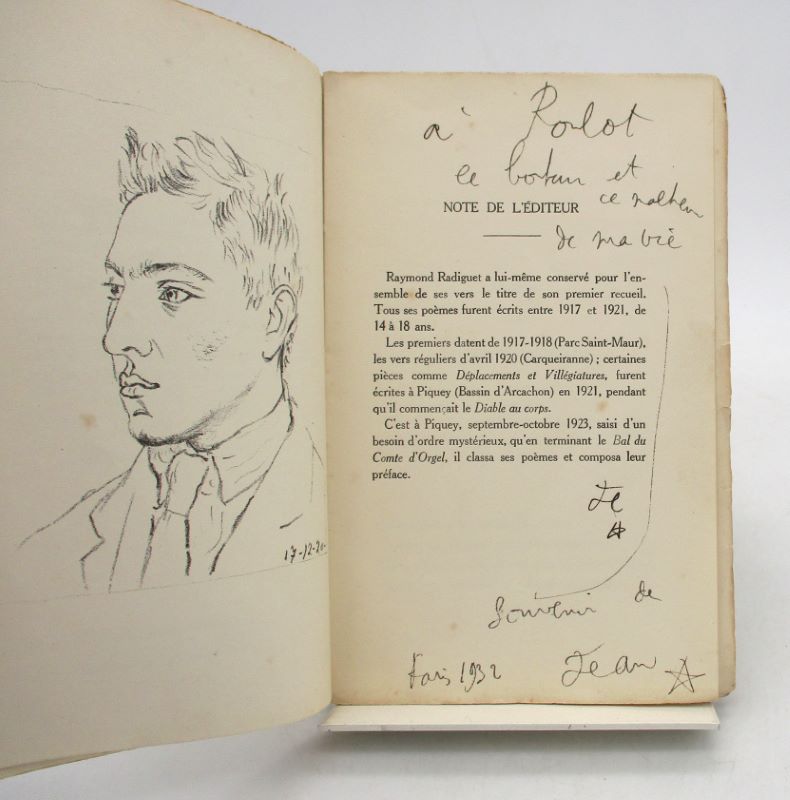 17-12-20-
à Roulot
ce bonheur et
ce malheur
de ma vie
NOTE DE L'ÉDITEUR
Raymond Radiguet a lui-même conservé pour l'en-
semble de ses vers le titre de son premier recueil.
Tous ses poèmes furent écrits entre 1917 et 1921, de
14 à 18 ans.
Les premiers datent de 1917-1918 (Parc Saint-Maur),
les vers réguliers d'avril 1920 (Carqueiranne) ; certaines
pièces comme Déplacements et Villégiatures, furent
écrites à Piquey (Bassin d'Arcachon) en 1921, pendant
qu'il commençait le Diable au corps.
C'est à Piquey, septembre-octobre 1923, saisi d'un
besoin d'ordre mystérieux, qu'en terminant le Bal du
Comte d'Orgel, il classa ses poèmes et composa leur
préface.
Souvenir de
Jean
Paris 1932